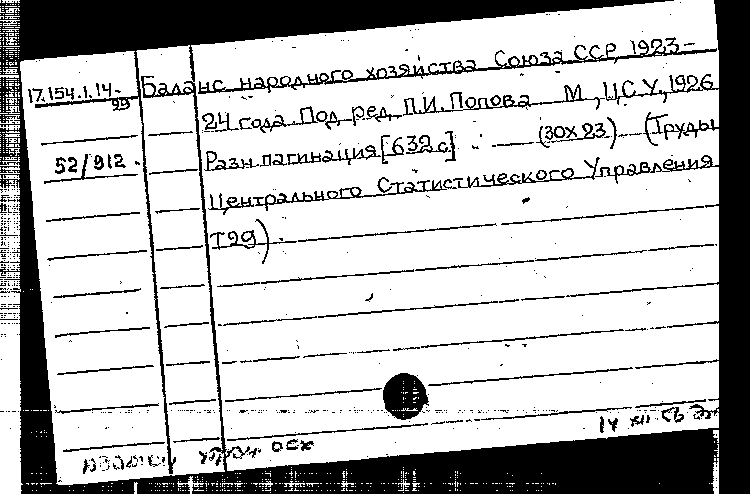 17.154.1.14-
99
Баланс народного хозяйства Союза ССР, 1923-
24 года. Под ред. П.И. Попова М, Ц.С.У., 1926
52/912.
Разн. пагинация [632 с] (30x23) (Труды
Центрального Статистического Управления
Т 29).
14 XII 56